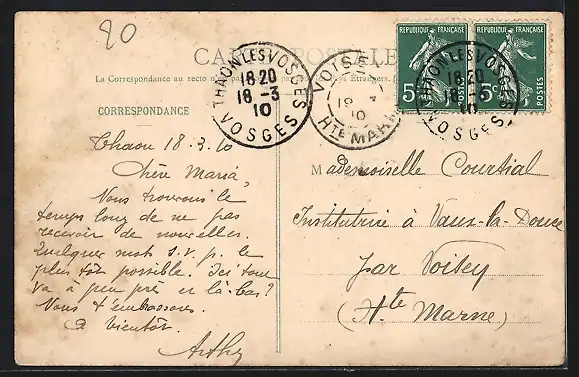 20
CARTE POSTALE
La Correspondance au recto n'
pas Etrangers.
CORRESPONDANCE
REPUBLIQUE FRANÇAISE
5c
POSTES
REPUBLIQUE FRANÇAISE
5c
POSTES
THAON LES VOSGES
18-20
18-3
10
VOSGES
VOISEY
19
3
10
HTE MARNE
THAON LES VOSGES
18-20
18
VOSGES
Thaon 18.3.10
Chère Maria,
Nous trouvons le
temps long de ne pas
recevoir de nouvelles.
Quelques mots s.v.p. le
plus tôt possible. Ici tout
va à peu près et là-bas?
Nous t'embrassons
à bientôt.
Mademoiselle Courtial
Institutrice à Vaux-la-Douce
par Voisey
(Hte Marne)